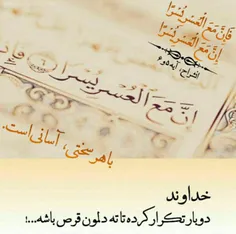 فَإِنَّ مَعَ الْعُسْرِ يُسْرًا
إِنَّ مَعَ الْعُسْرِ يُسْرًا
انشراح، آیه ۵و۶
إِنَّ مَعَ الْعُسْرِ يُسْرًا
با هر سختی، آسانی است.
خداوند
دوبار تکرار کرده تا ته دلمون قرص باشه...!